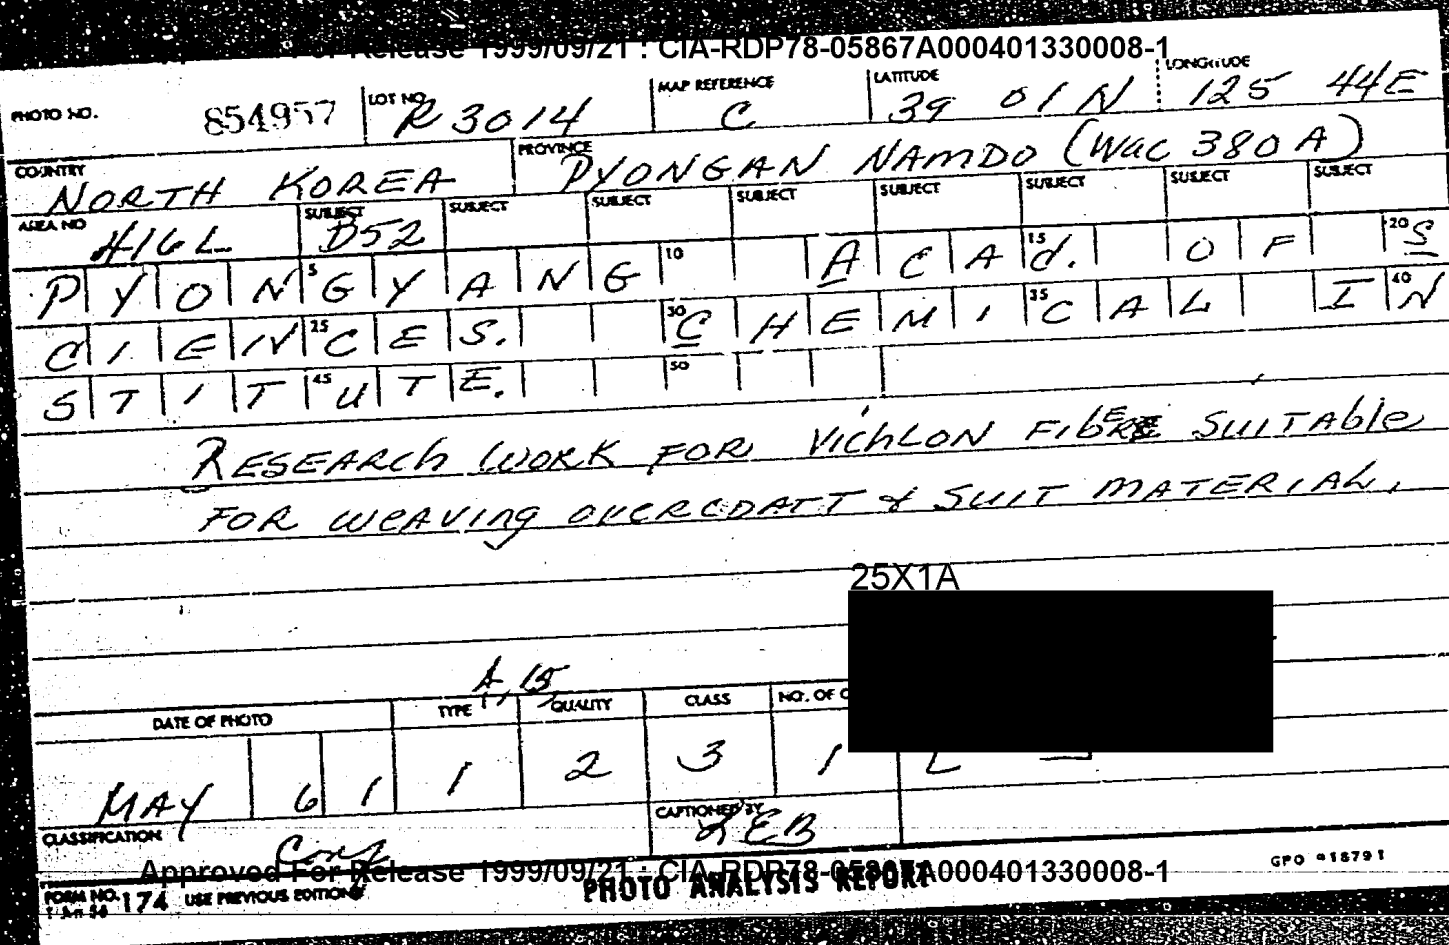 Approved For Release 1999/09/21 : CIA-RDP78-05867A000401330008-1
PHOTO NO. 854957 LOT NO. R 3014 MAP REFERENCE C LATITUDE 39 01N LONGITUDE 125 44E
COUNTRY NORTH KOREA PROVINCE PYONGAN NAMDO (WAC 380 A)
AREA NO 416L SUBJECT D52 SUBJECT SUBJECT SUBJECT SUBJECT SUBJECT SUBJECT SUBJECT
PYON 5 GYANG 10 ACA 15 d. OF 20 S
CIEN 25 CES. 30 CHEMI 35 CAL I 40 N
STIT 45 UTE. 50
RESEARCh WORK FOR VichLON FIbERE SUITAble
FOR WEAVINg OVERCOATT & SUIT MATERIAL.
25X1A
A, 15
DATE OF PHOTO TYPE QUALITY CLASS NO. OF C
MAY 6 1 1 2 3 1
CLASSIFICATION Conf CAPTIONED BY LEB
Approved For Release 1999/09/21 : CIA-RDP78-05867A000401330008-1
GPO 918791
FORM NO. 174 USE PREVIOUS EDITIONS PHOTO ANALYSIS REPORT